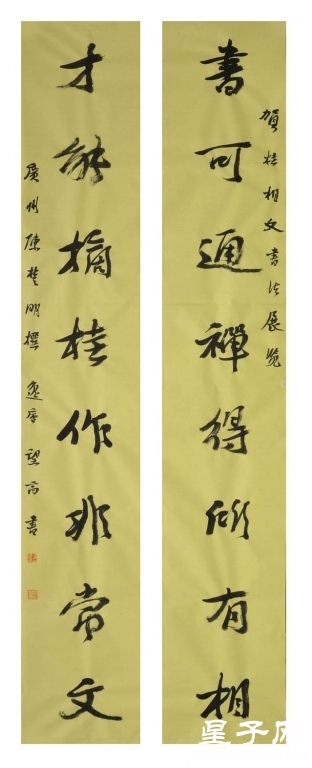 賀桂相文書法展覽
書可通禪得所有相
才能摘桂作非常文
廣州陳楚明撰 書
星子